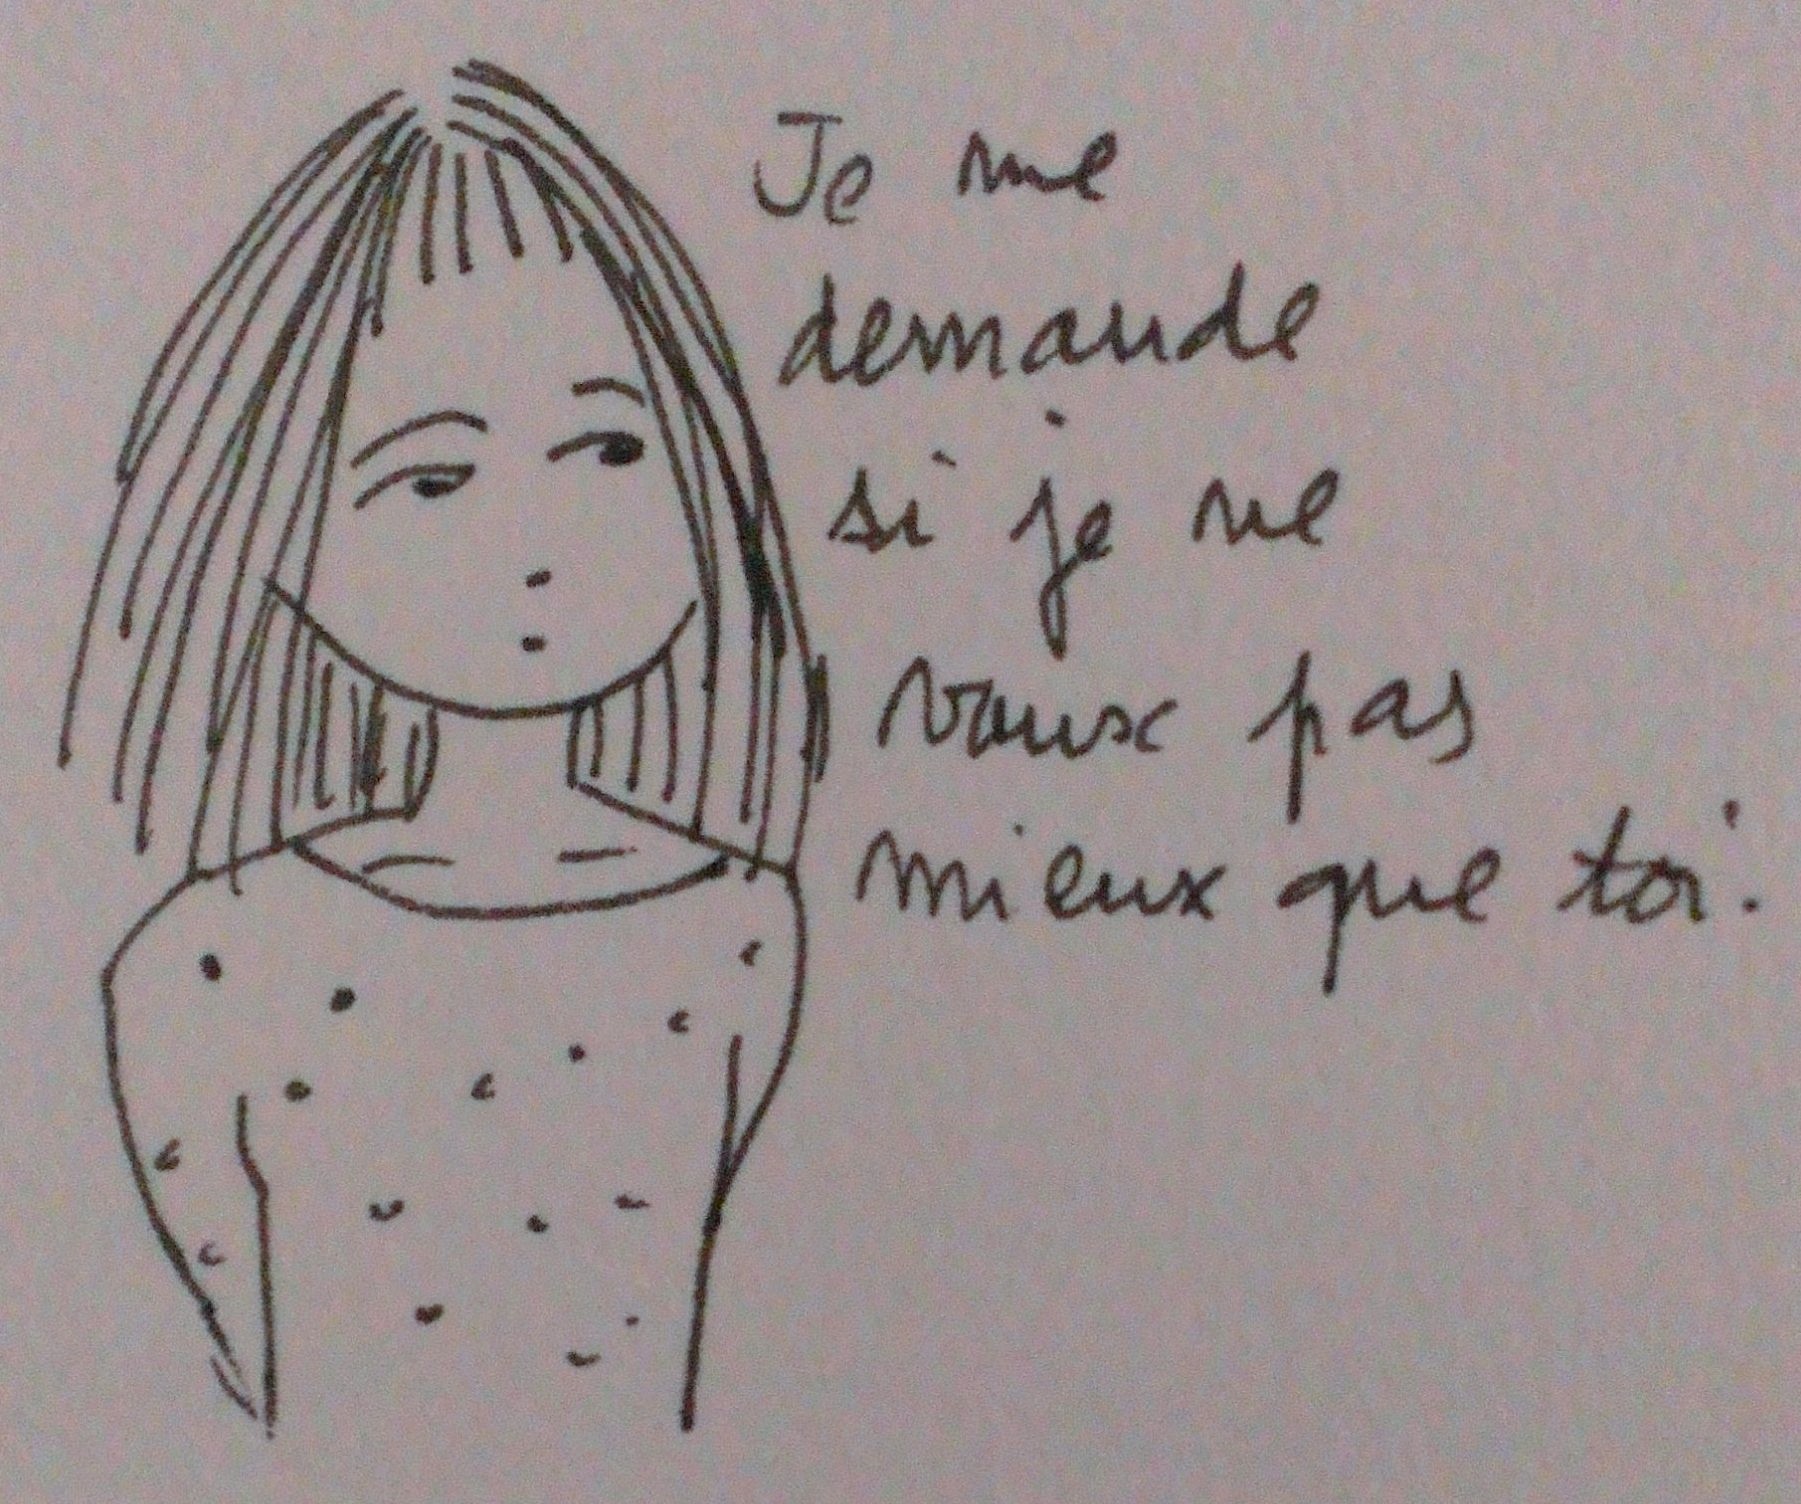 Je me
demande
si je ne
vaux pas
mieux que toi.